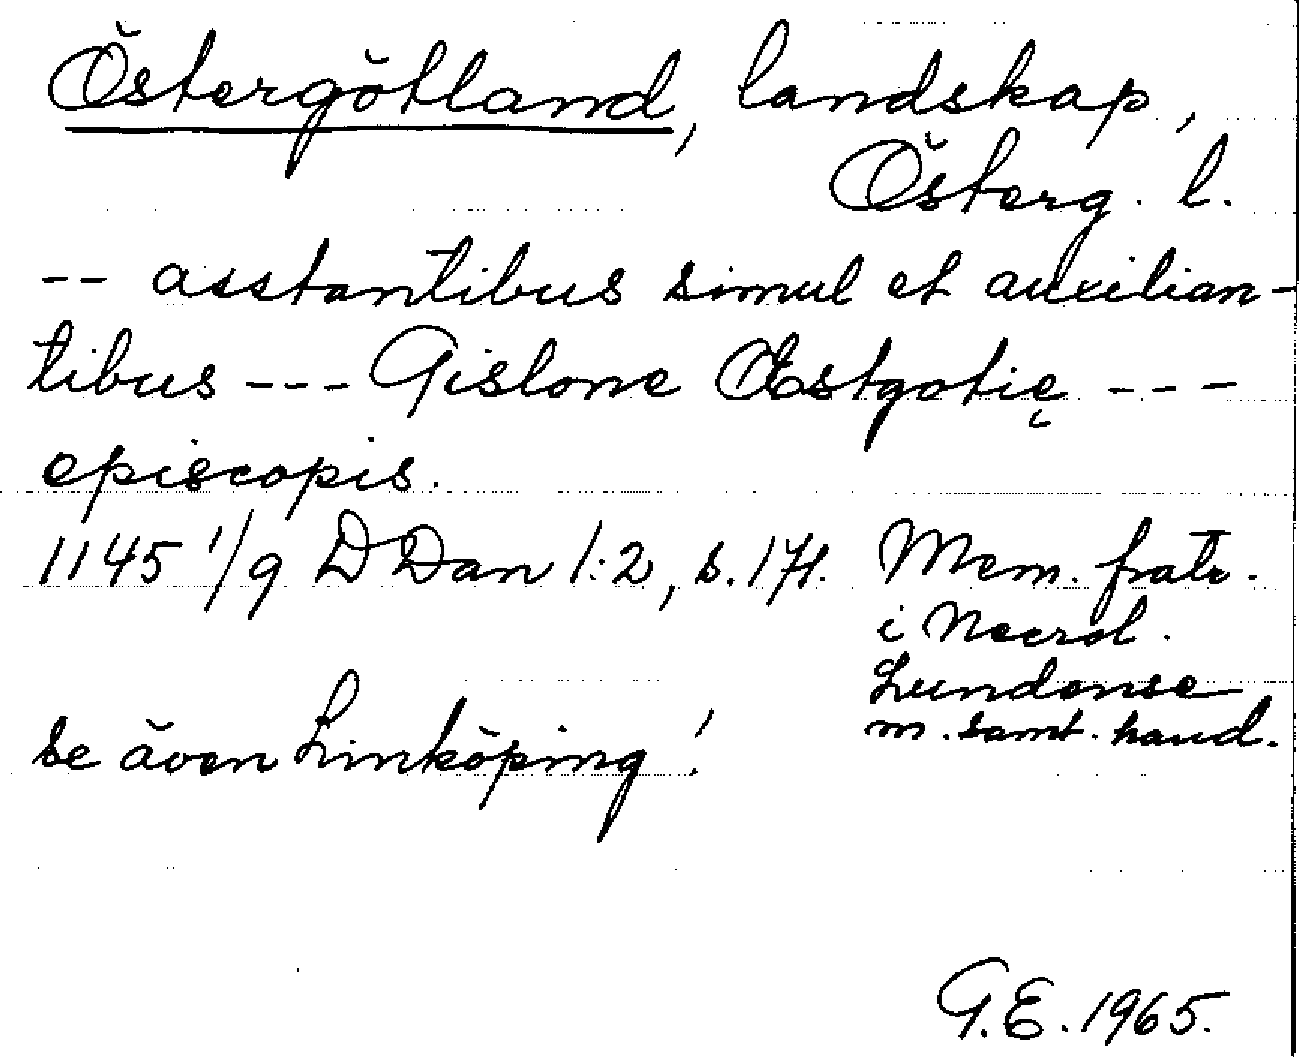 Östergötland, landskap,
Österg. l.
-- asstantibus simul et auxilian-
tibus --- Gislone Œstgotię ---
episcopis.
1145 1/9 DDan 1:2, s. 171. Mem. fratr.
i Necrol.
Lundense
m. samt. hand.
se även Linköping!
G.E. 1965.